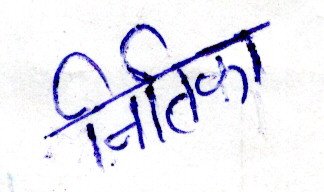 नितिका